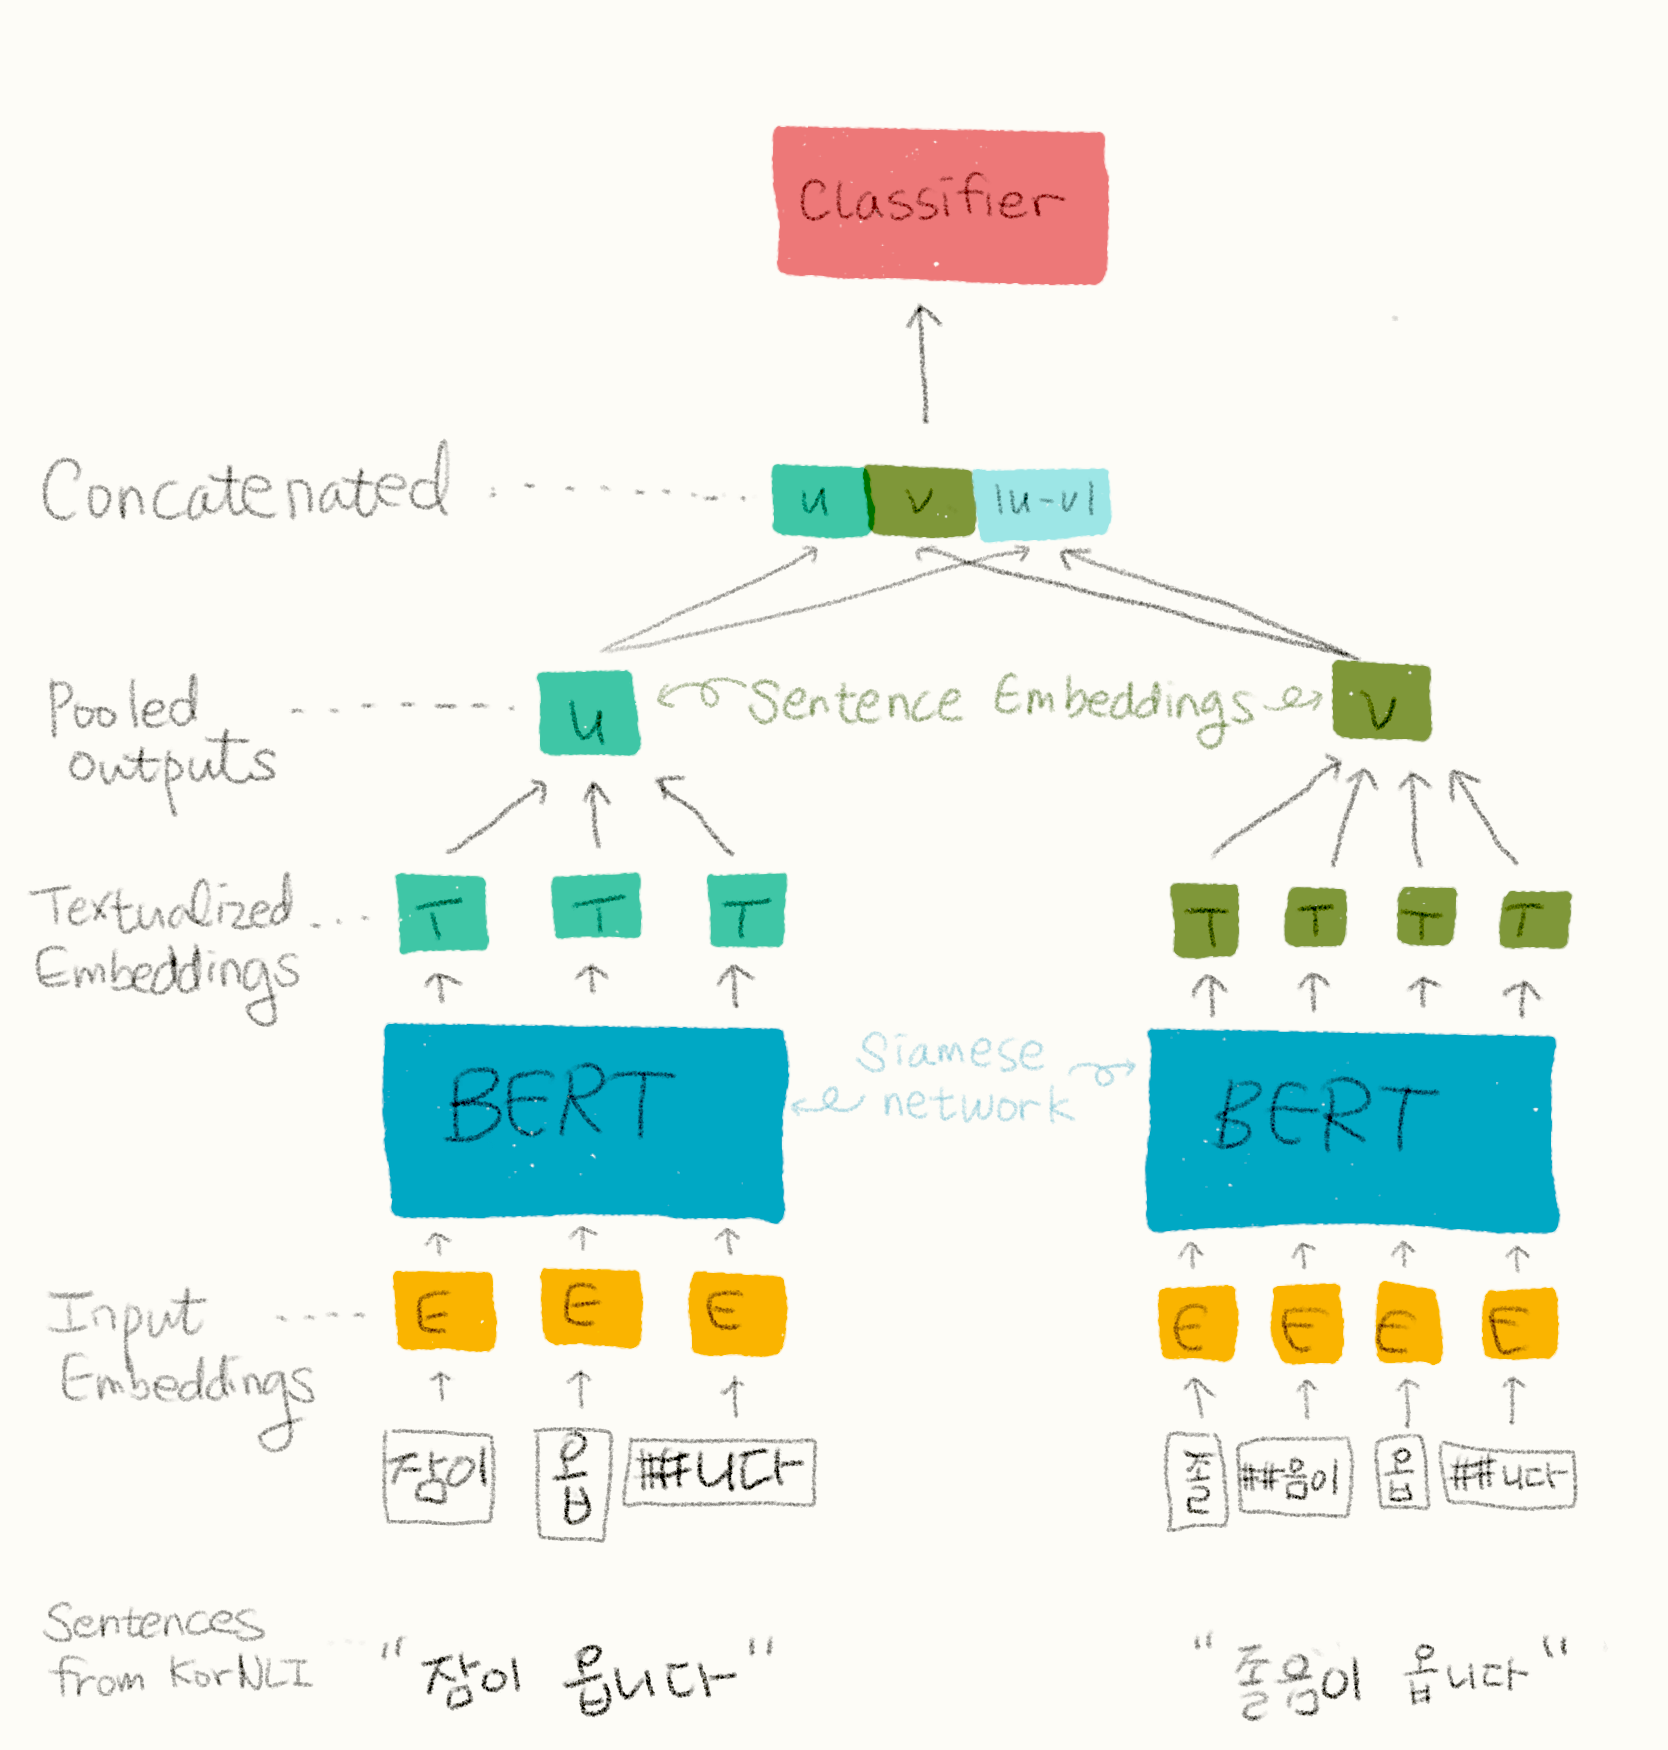 Classifier
Concatenated
u v |u-v|
Pooled
outputs
u
Sentence Embeddings
v
Textualized
Embeddings
T T T
T T T T
BERT
Siamese
network
BERT
Input
Embeddings
E E E
E E E E
잠이 옵 ##니다
졸 ##음이 옵 ##니다
Sentences
from KorNLI
"잠이 옵니다"
"졸음이 옵니다"